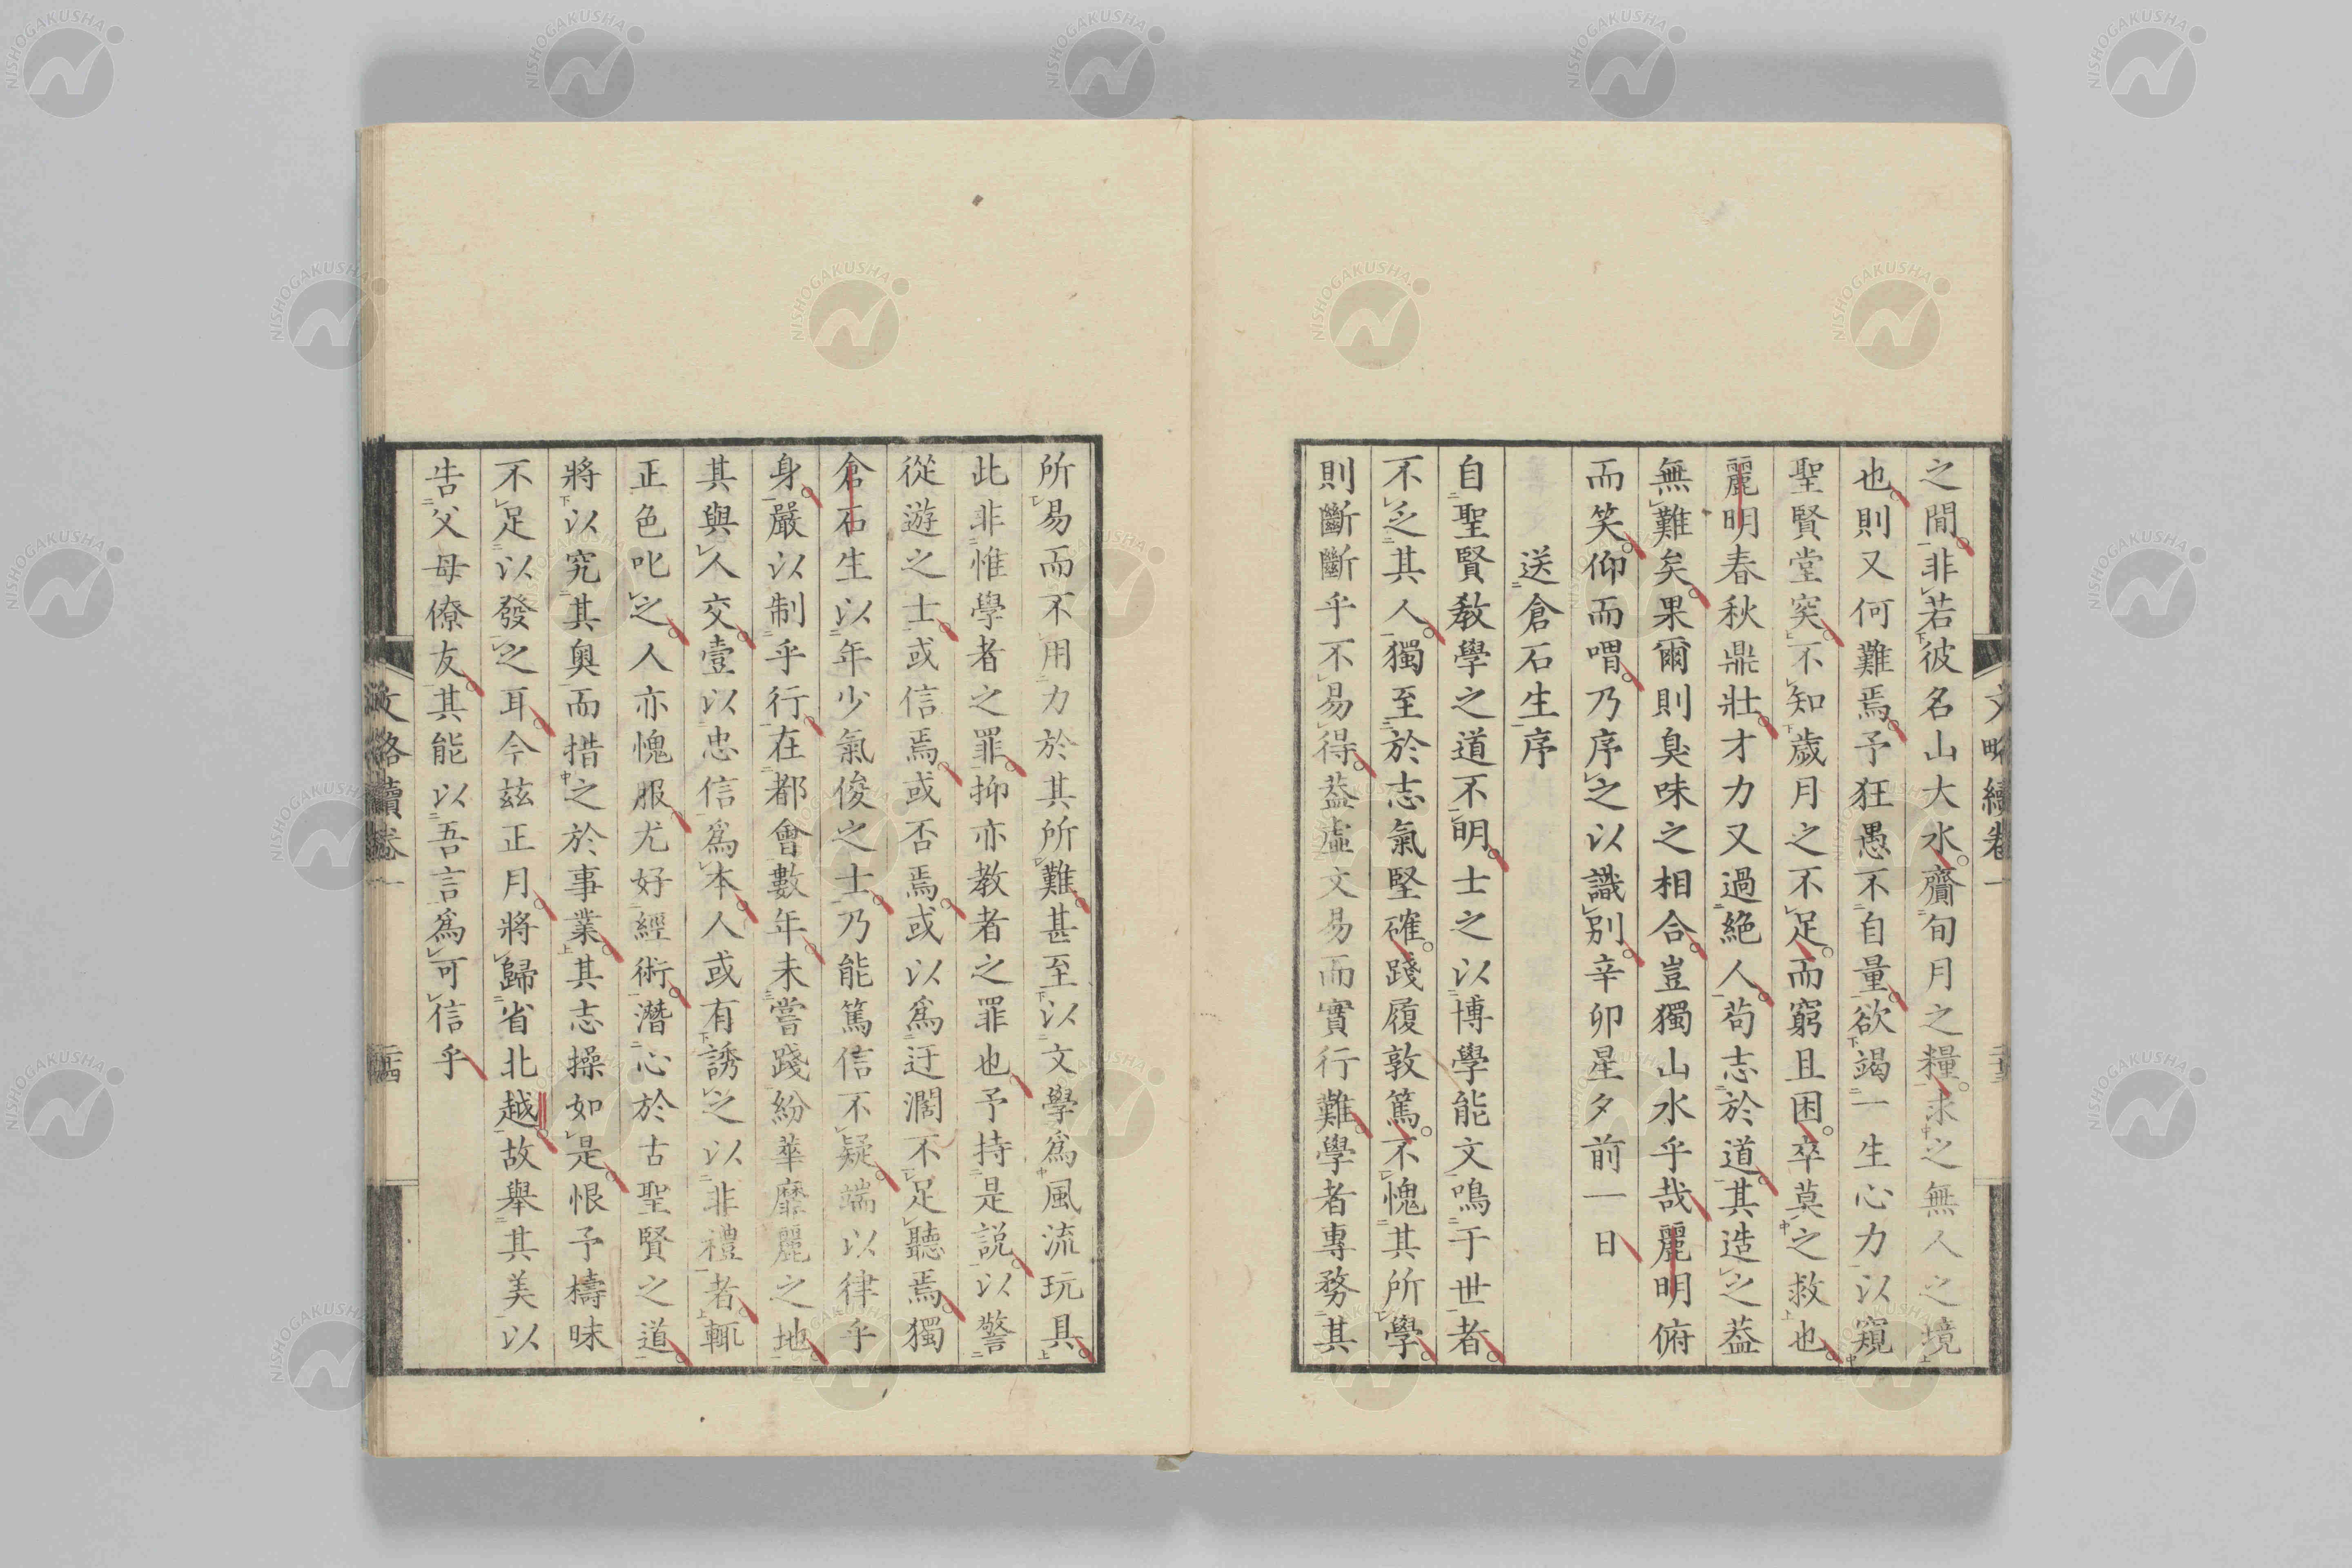 之閒非若彼名山大水齎旬月之糧求之無人之境
也則又何難焉予狂愚不自量欲竭一生心力以窺
聖賢堂突不知歲月之不足而窮且困卒莫之救也
麗明春秋鼎壯才力又過絶人苟志於道其造之葢
無難矣果爾則臭味之相合豈獨山水乎哉麗明俯
而笑仰而喟乃序之以識別辛卯星夕前一日
送倉石生序
自聖賢敎學之道不明士之以博學能文鳴于世者
不乏其人獨至於志氣堅確踐履敦篤不愧其所學
則斷斷乎不易得葢虛文易而實行難學者專務其
所易而不用力於其所難甚至以文學爲風流玩具
此非惟學者之罪抑亦教者之罪也予持是説以警
從遊之士或信焉或否焉或以爲迂濶不足聽焉獨
倉石生以年少氣俊之士乃能篤信不疑端以律乎
身嚴以制乎行在都會數年未嘗踐紛華靡麗之地
其與人交壹以忠信爲本人或有誘之以非禮者輒
正色叱之人亦愧服尤好經術潛心於古聖賢之道
將以究其奧而措之於事業其志操如是恨予檮昧
不足以發之耳今玆正月將歸省北越故舉其美以
告父母僚友其能以吾言爲可信乎
文略續卷一
二十四
NISHOGAKUSHA